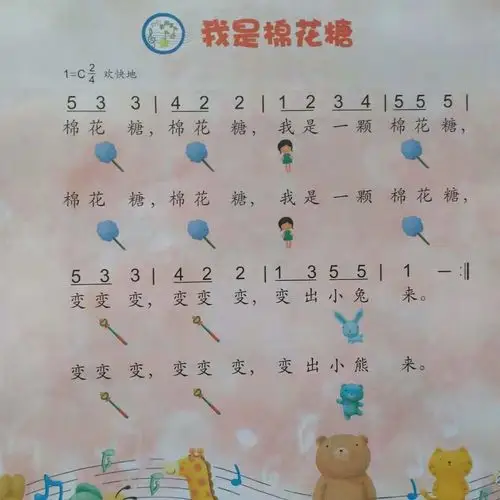 我是棉花糖
1=C 2/4 欢快地
5 3 3 | 4 2 2 | 1 2 3 4 | 5 5 5 |
棉花 糖, 棉花 糖, 我是一颗 棉花糖,
棉花 糖, 棉花 糖, 我是一颗 棉花糖,
5 3 3 | 4 2 2 | 1 3 5 5 | 1 — :‖
变变变, 变变变, 变出小兔 来。
变变变, 变变变, 变出小熊 来。